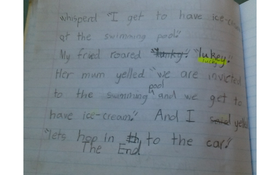 whaperd "I get to have ice-cream
at the swimming pool."
My fried roared "lukey."
lucky
Her mum yelled "we are invieted
to the swimming pool and we get to
have ice-cream." And I yelled
"lets hop in to the car."
The End